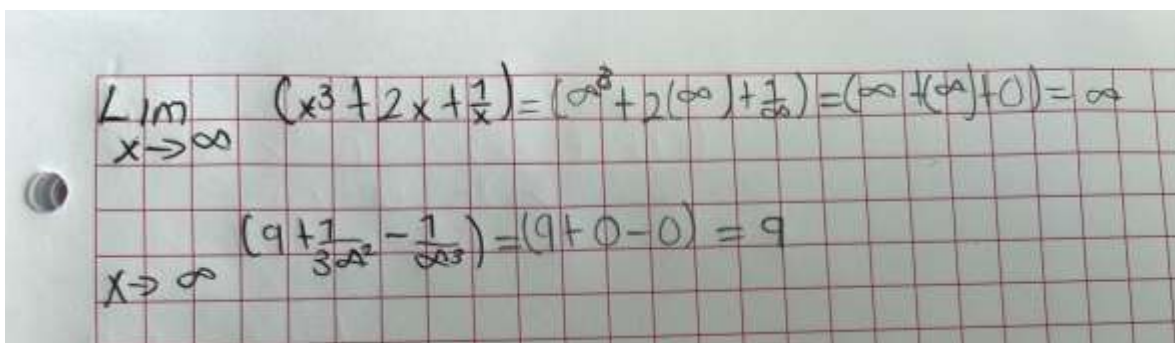 Lim (x³ + 2x + 1/x) = (∞³ + 2(∞) + 1/∞) = (∞ + (∞) + 0) = ∞
x → ∞
(9 + 1/3∞² - 1/∞³) = (9 + 0 - 0) = 9
x → ∞